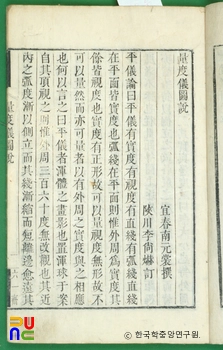 量度儀圖說
宜春南元裳撰
陜川李尙爀訂
平儀論曰平儀有實度有視度有直綫有弧綫直綫
在平面皆實度也弧綫在平面則惟外周爲實度其
餘皆視度也實度有正形故可以量視度無形故不
可以量然而亦可量者以有外周之實度與之相應
也何以言之曰平儀者渾體之畫影也置渾球于案
自其頂視之則惟外周三百六十度無改觀也其近
內之弧度漸以側立而其綫漸縮而短離邊愈遠其
量度儀圖說
한국학중앙연구원